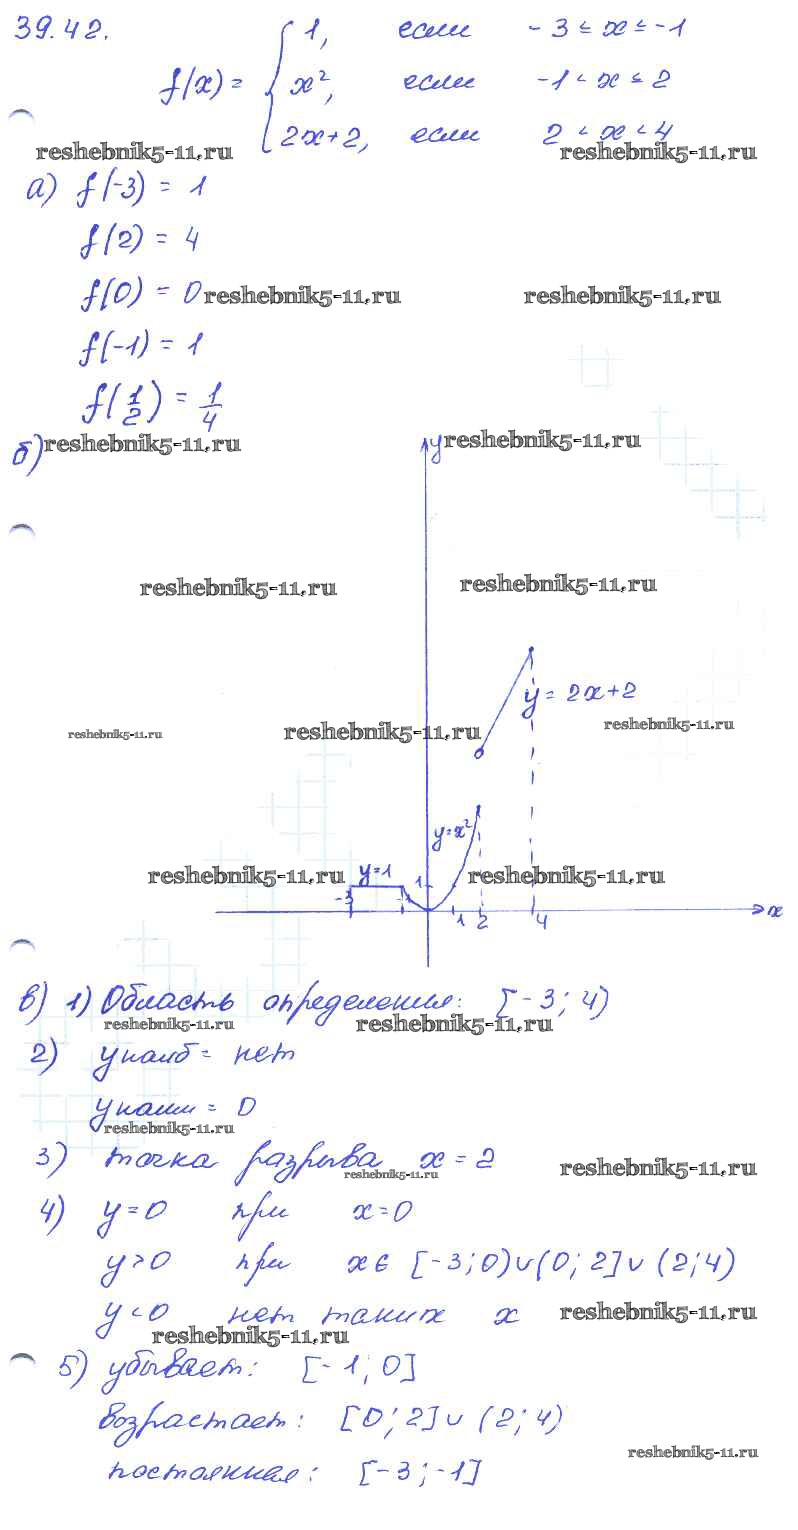 39.42.
f(x) = { 1, если -3 ≤ x ≤ -1
x², если -1 < x ≤ 2
2x+2, если 2 < x < 4
reshebnik5-11.ru reshebnik5-11.ru
а) f(-3) = 1
f(2) = 4
f(0) = 0
reshebnik5-11.ru reshebnik5-11.ru
f(-1) = 1
f(1/2) = 1/4
б)
reshebnik5-11.ru y reshebnik5-11.ru
reshebnik5-11.ru reshebnik5-11.ru
y = 2x+2
reshebnik5-11.ru reshebnik5-11.ru reshebnik5-11.ru
y=x²
reshebnik5-11.ru y=1 1 reshebnik5-11.ru
-3 -1 1 2 4 x
в) 1) Область определения: [-3; 4)
reshebnik5-11.ru reshebnik5-11.ru
2) yнаиб = нет
yнаим = 0
reshebnik5-11.ru
3) точка разрыва x = 2
reshebnik5-11.ru reshebnik5-11.ru
4) y=0 при x=0
y>0 при x∈ [-3;0)∪(0;2]∪(2;4)
y<0 нет таких x
reshebnik5-11.ru reshebnik5-11.ru
5) убывает: [-1; 0]
возрастает: [0; 2]∪(2; 4)
reshebnik5-11.ru
постоянная: [-3; -1]